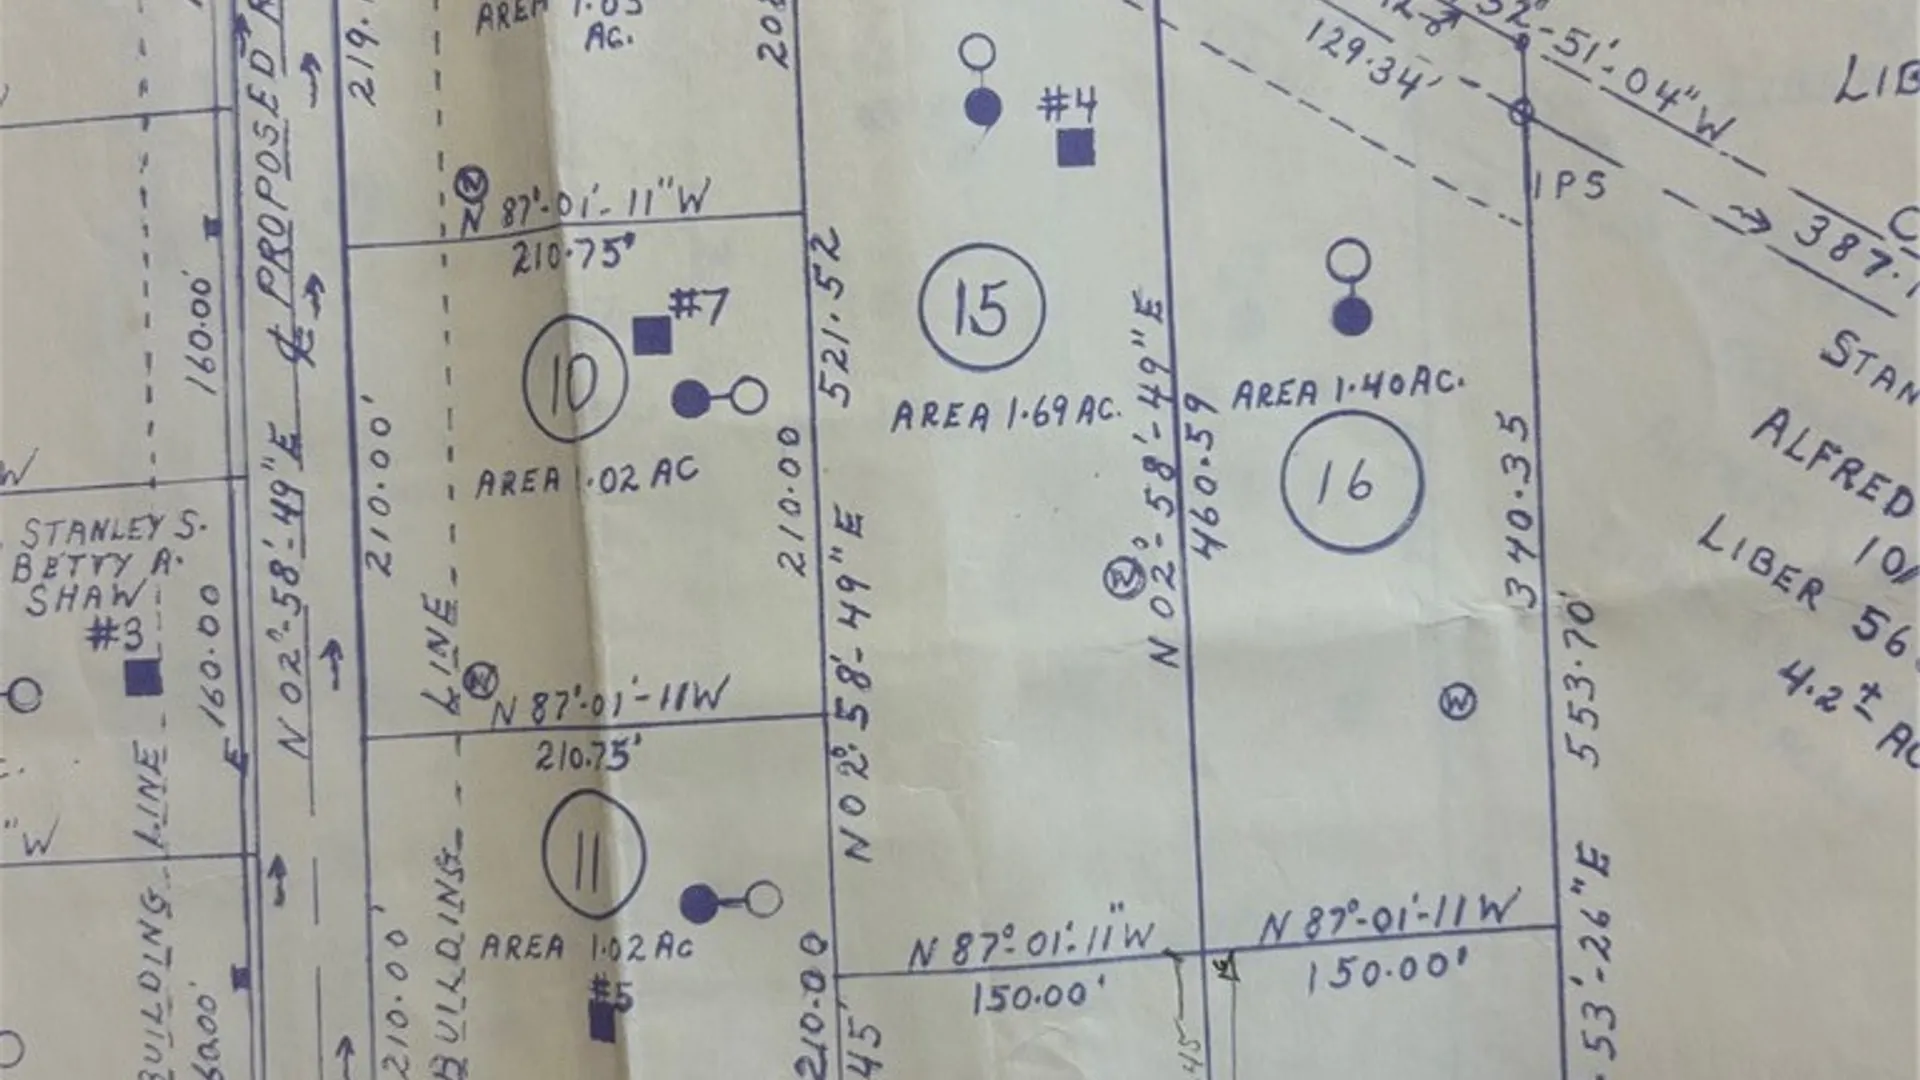 AREA 1.03
AC.
219.
208
PROPOSED R
℄
N 02°-58'-49" E
160.00'
160.00
160.00'
W
STANLEY S.
BETTY A.
SHAW
#3
"W
BUILDING LINE
BUILDING LINE
N 87°-01'-11" W
210.75'
#7
10
AREA 1.02 AC
210.00'
210.00
N 87°-01'-11 W
210.75'
11
AREA 1.02 AC
#5
210.00'
210.00
45'
521.52
N 02°-58'-49" E
#4
15
AREA 1.69 AC.
N 02°-58'-49" E
460.59
N 87°-01'-11" W
150.00'
45
AREA 1.40 AC.
16
340.35
N 87°-01'-11 W
150.00'
553.70'
53'-26" E
129.34'
52°-51'-04" W
IPS
387.1
LIB
C
STAN
ALFRED
10/
LIBER 56
4.2± AC